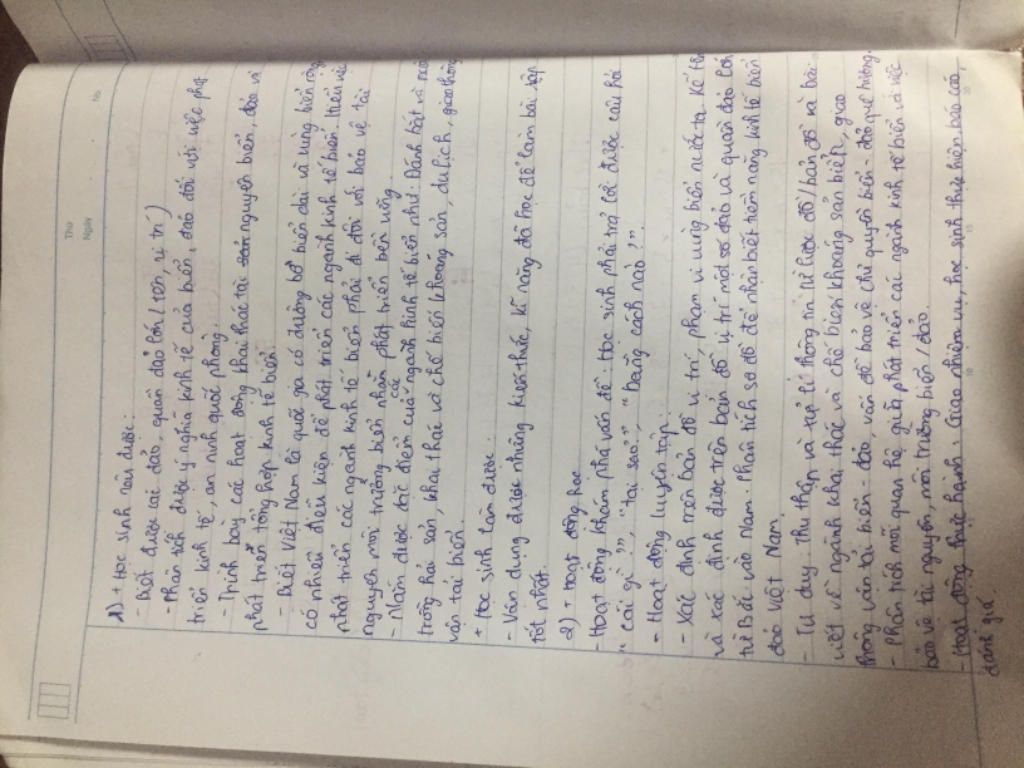 Thứ
Ngày
No
1) + Học sinh nêu được:
- Biết được cái đảo, quần đảo lớn (tên, vị trí)
- Phân tích được ý nghĩa kinh tế của biển, đảo đối với việc phát
triển kinh tế, an ninh quốc phòng.
- Trình bày các hoạt động khai thác tài nguyên biển, đảo và
phát triển tổng hợp kinh tế biển.
- Biết Việt Nam là quốc gia có đường bờ biển dài và vùng biển rộng
có nhiều điều kiện để phát triển các ngành kinh tế biển. Hiểu việc
phát triển các ngành kinh tế biển phải đi đôi với bảo vệ tài
nguyên môi trường biển nhằm phát triển bền vững.
- Nắm được đặc điểm của các ngành kinh tế biển như: Đánh bắt và nuôi
trồng hải sản, khai thái và chế biến khoáng sản, du lịch, giao thông
vận tải biển.
+ Học sinh làm được:
- Vận dụng được những kiến thức, kĩ năng đã học để làm bài tập
tốt nhất.
2) + Hoạt động học
- Hoạt động khám phá vấn đề: Học sinh phải trả lời được câu hỏi
"cái gì?", "tại sao?", "bằng cách nào?".
- Hoạt động luyện tập:
- Xác định trên bản đồ vị trí, phạm vi vùng biển nước ta. Kể tên
và xác định được trên bản đồ vị trí một số đảo và quần đảo lớn
từ Bắc vào Nam. Phân tích sơ đồ để nhận biết tiềm năng kinh tế biển
đảo Việt Nam.
- Tư duy: thu thập và xử lí thông tin từ lược đồ/bản đồ và bài
viết về ngành khai thái và chế biến khoáng sản biển, giao
thông vận tải biển - đảo, vấn đề bảo vệ chủ quyền biển - đảo quê hương.
- Phân tích mối quan hệ giữa phát triển các ngành kinh tế biển với việc
bảo vệ tài nguyên, môi trường biển/đảo.
- Hoạt động thực hành: Giao nhiệm vụ, học sinh thực hiện báo cáo,
đánh giá.